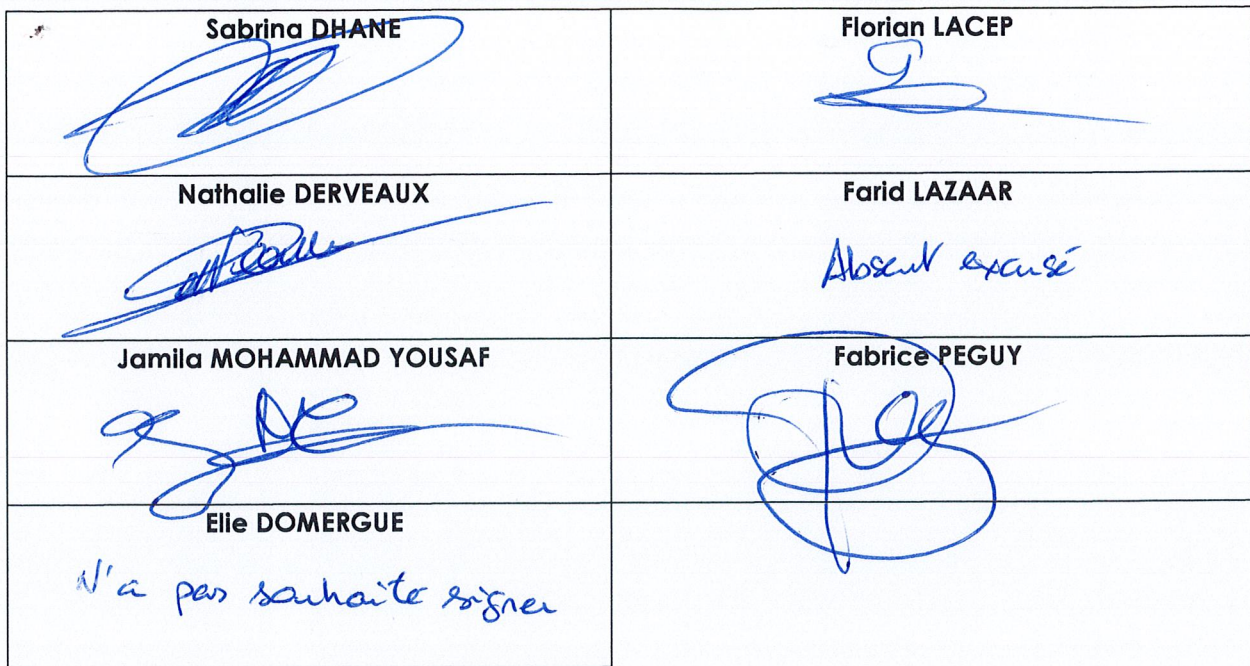 Sabrina DHANE
Florian LACEP
Nathalie DERVEAUX
Farid LAZAAR
Absent excusé
Jamila MOHAMMAD YOUSAF
Fabrice PEGUY
Elie DOMERGUE
N'a pas souhaité signer